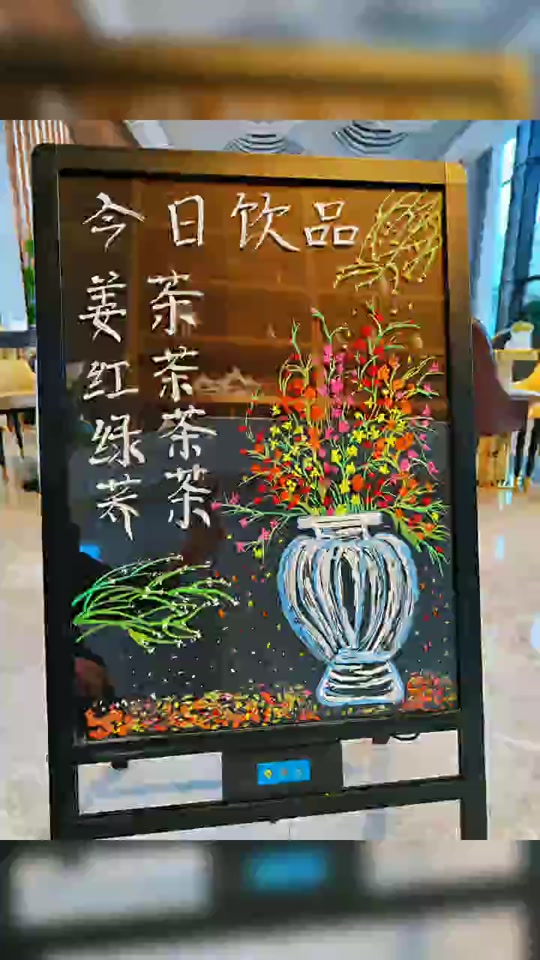 今日饮品
姜茶
红茶
绿茶
荞茶